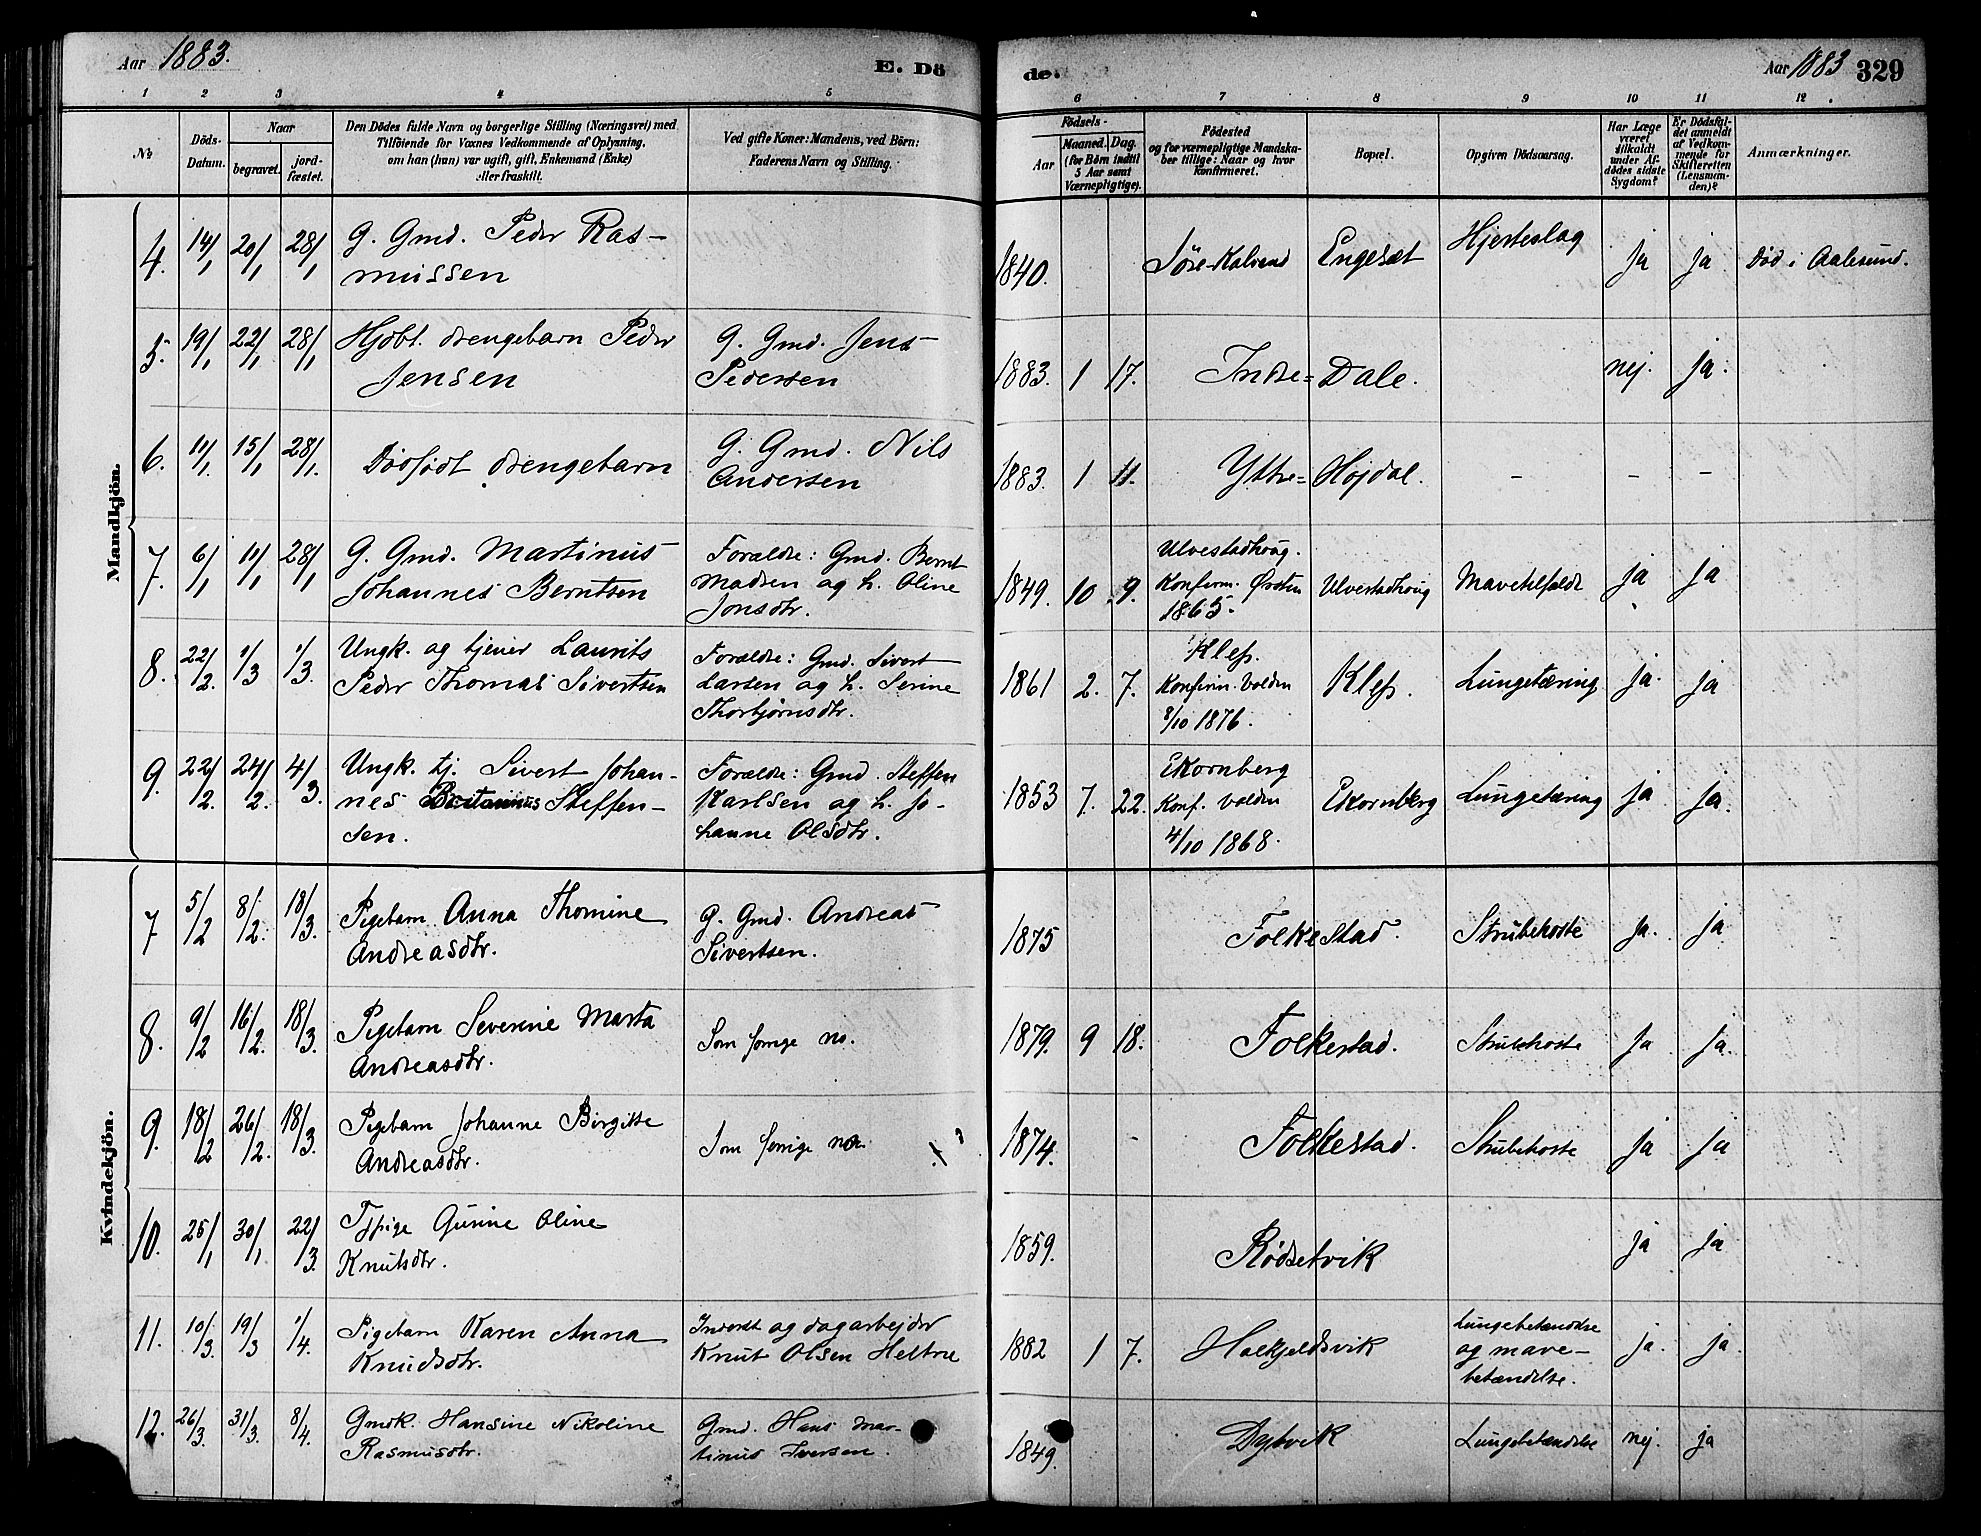 Aar 1883.
E. Dö
de.
Aar 1883 329
1 2 3 4 5 6 7 8 9 10 11 12
No
Döds-
Datum.
Naar
begravet.
jord-
fæstet.
Den Dödes fulde Navn og borgerlige Stilling (Næringsvei) med
Tilföiende for Voxnes Vedkommende af Oplysning,
om han (hun) var ugift, gift, Enkemand (Enke)
eller fraskilt.
Ved gifte Koner: Mandens, ved Börn:
Faderens Navn og Stilling.
Födsels-
Aar
Maaned. Dag.
(for Börn indtil
5 Aar samt
Værnepligtige).
Födested
og for værnepligtige Mandska-
ber tillige: Naar og hvor
konfirmeret.
Bopæl.
Opgiven Dödsaarsag.
Har Læge
været
tilkaldt
under Af-
dödes sidste
Sygdom?
Er Dödsfal-
det anmeldt
af Vedkom-
mende for
Skifteretten
(Lensman-
den)?
Anmærkninger.
Mandkjön.
4. 14/1 20/1 28/1 G. Gmd. Peder Ras-
mussen
1840. Engeset Hjerteslag ja ja Död i Aalesund.
5. 19/1 22/1 28/1 Hjdbt. drengebarn Peder
Jensen
G. Gmd. Jens
Pedersen
1883. 1 17. Indre= Dale. nej. ja.
6. 11/1. 15/1 28/1. Dödfödt drengebarn
G. Gmd. Nils
Andersen
1883. 1 11. Ytre= Højdal. - - -
7. 6/1 11/1 28/1 G. Gmd. Martinus
Johannes Berntsen
Forældre: Gmd. Bernt
Madsen og h. Oline
Jonsdtr.
1849. 10 9. Ulvestadhoug.
Konfirm. Ørsten
1865.
Ulvestadhoug Mavetilfælde ja ja
8. 22/2. 1/3 1/3. Ungk. og tjener Laurits
Peder Thomas Sivertsen
Forældre: Gmd. Sivert
Larsen og h. Serine
Thorbjørnsdtr.
1861 2. 7. Klep.
Konfirm. Volden
8/10 1876.
Klep. Lungetæring ja. ja
9. 22/2. 24/2. 4/3. Ungk. tj. Sivert Johan-
nes Steffen-
sen.
Forældre: Gmd. Steffen
Karlsen og h. Jo-
hanne Olsdtr.
1853 7. 22. Ekornberg
Konf. Volden
4/10 1868.
Ekornberg Lungetæring ja ja.
Kvindekjön.
7 5/2 8/2. 18/3. Pigebarn Anna Thomine
Andreasdtr.
G. Gmd. Andreas
Sivertsen.
1875 Folkestad. Strubehoste ja. ja
8. 9/2 16/2. 18/3. Pigebarn Severine Marta
Andreasdtr.
Som forrige no.
1879. 9 18. Folkestad. Strubehoste ja ja.
9. 18/2 26/2. 18/3. Pigebarn Johanne Birgitte
Andreasdtr.
Som forrige no.
1874. Folkestad. Strubehoste ja ja
10. 25/1 30/1 22/3. Tjpige Gurine Oline
Knutsdtr.
1859. Rödsetvik ja ja
11. 10/3. 19/3 1/4. Pigebarn Karen Anna
Knudsdtr.
Inderst og dagarbejder
Knut Olsen Heltne
1882 1 7. Holkjeldsvik Lungebetændelse
og mave-
betændelse.
ja. ja.
12. 26/3. 31/3. 8/4. Gmdk. Hansine Nikoline
Rasmusdtr.
Gmd. Hans Mar-
tinus Iversen.
1849. Dybvik Lungebetændelse nej. ja